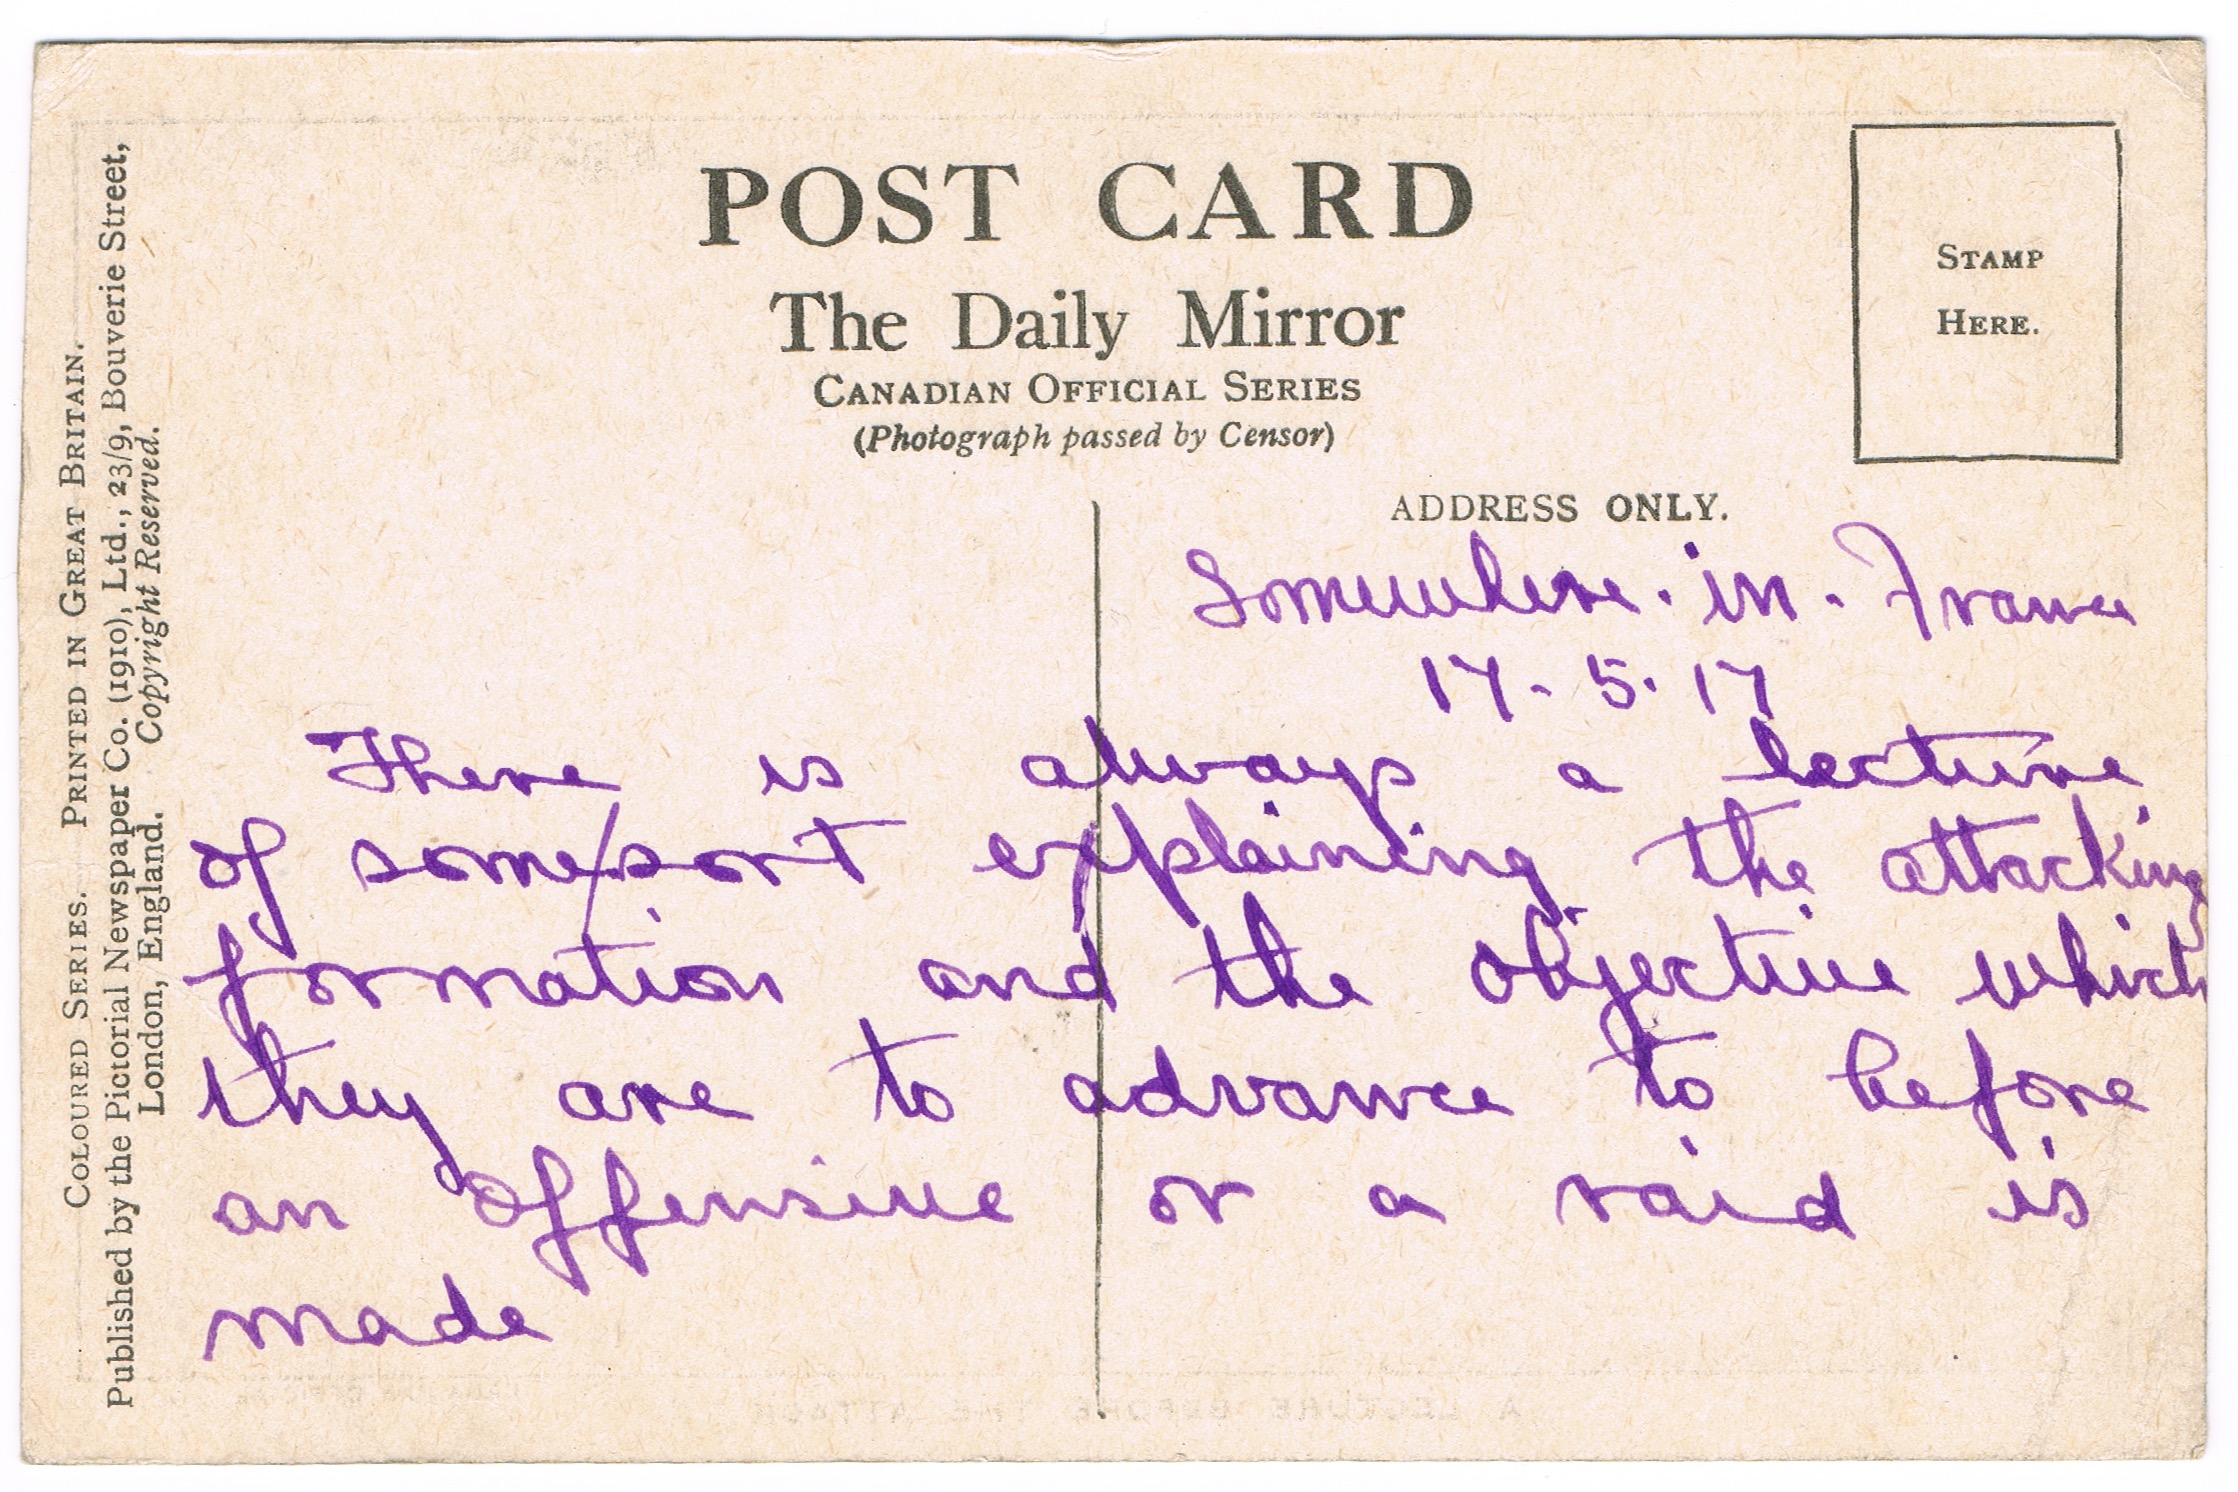 POST CARD
The Daily Mirror
CANADIAN OFFICIAL SERIES
(Photograph passed by Censor)
STAMP
HERE.
ADDRESS ONLY.
COLOURED SERIES. PRINTED IN GREAT BRITAIN.
Published by the Pictorial Newspaper Co. (1910), Ltd., 23/9, Bouverie Street,
London, England. Copyright Reserved.
Somewhere. in. France
17. 5. 17
There is always a lecture
of some/sort explaining the attacking
formation and the objective which
they are to advance to before
an offensive or a raid is
made
A LECTURE BEFORE THE ATTACK